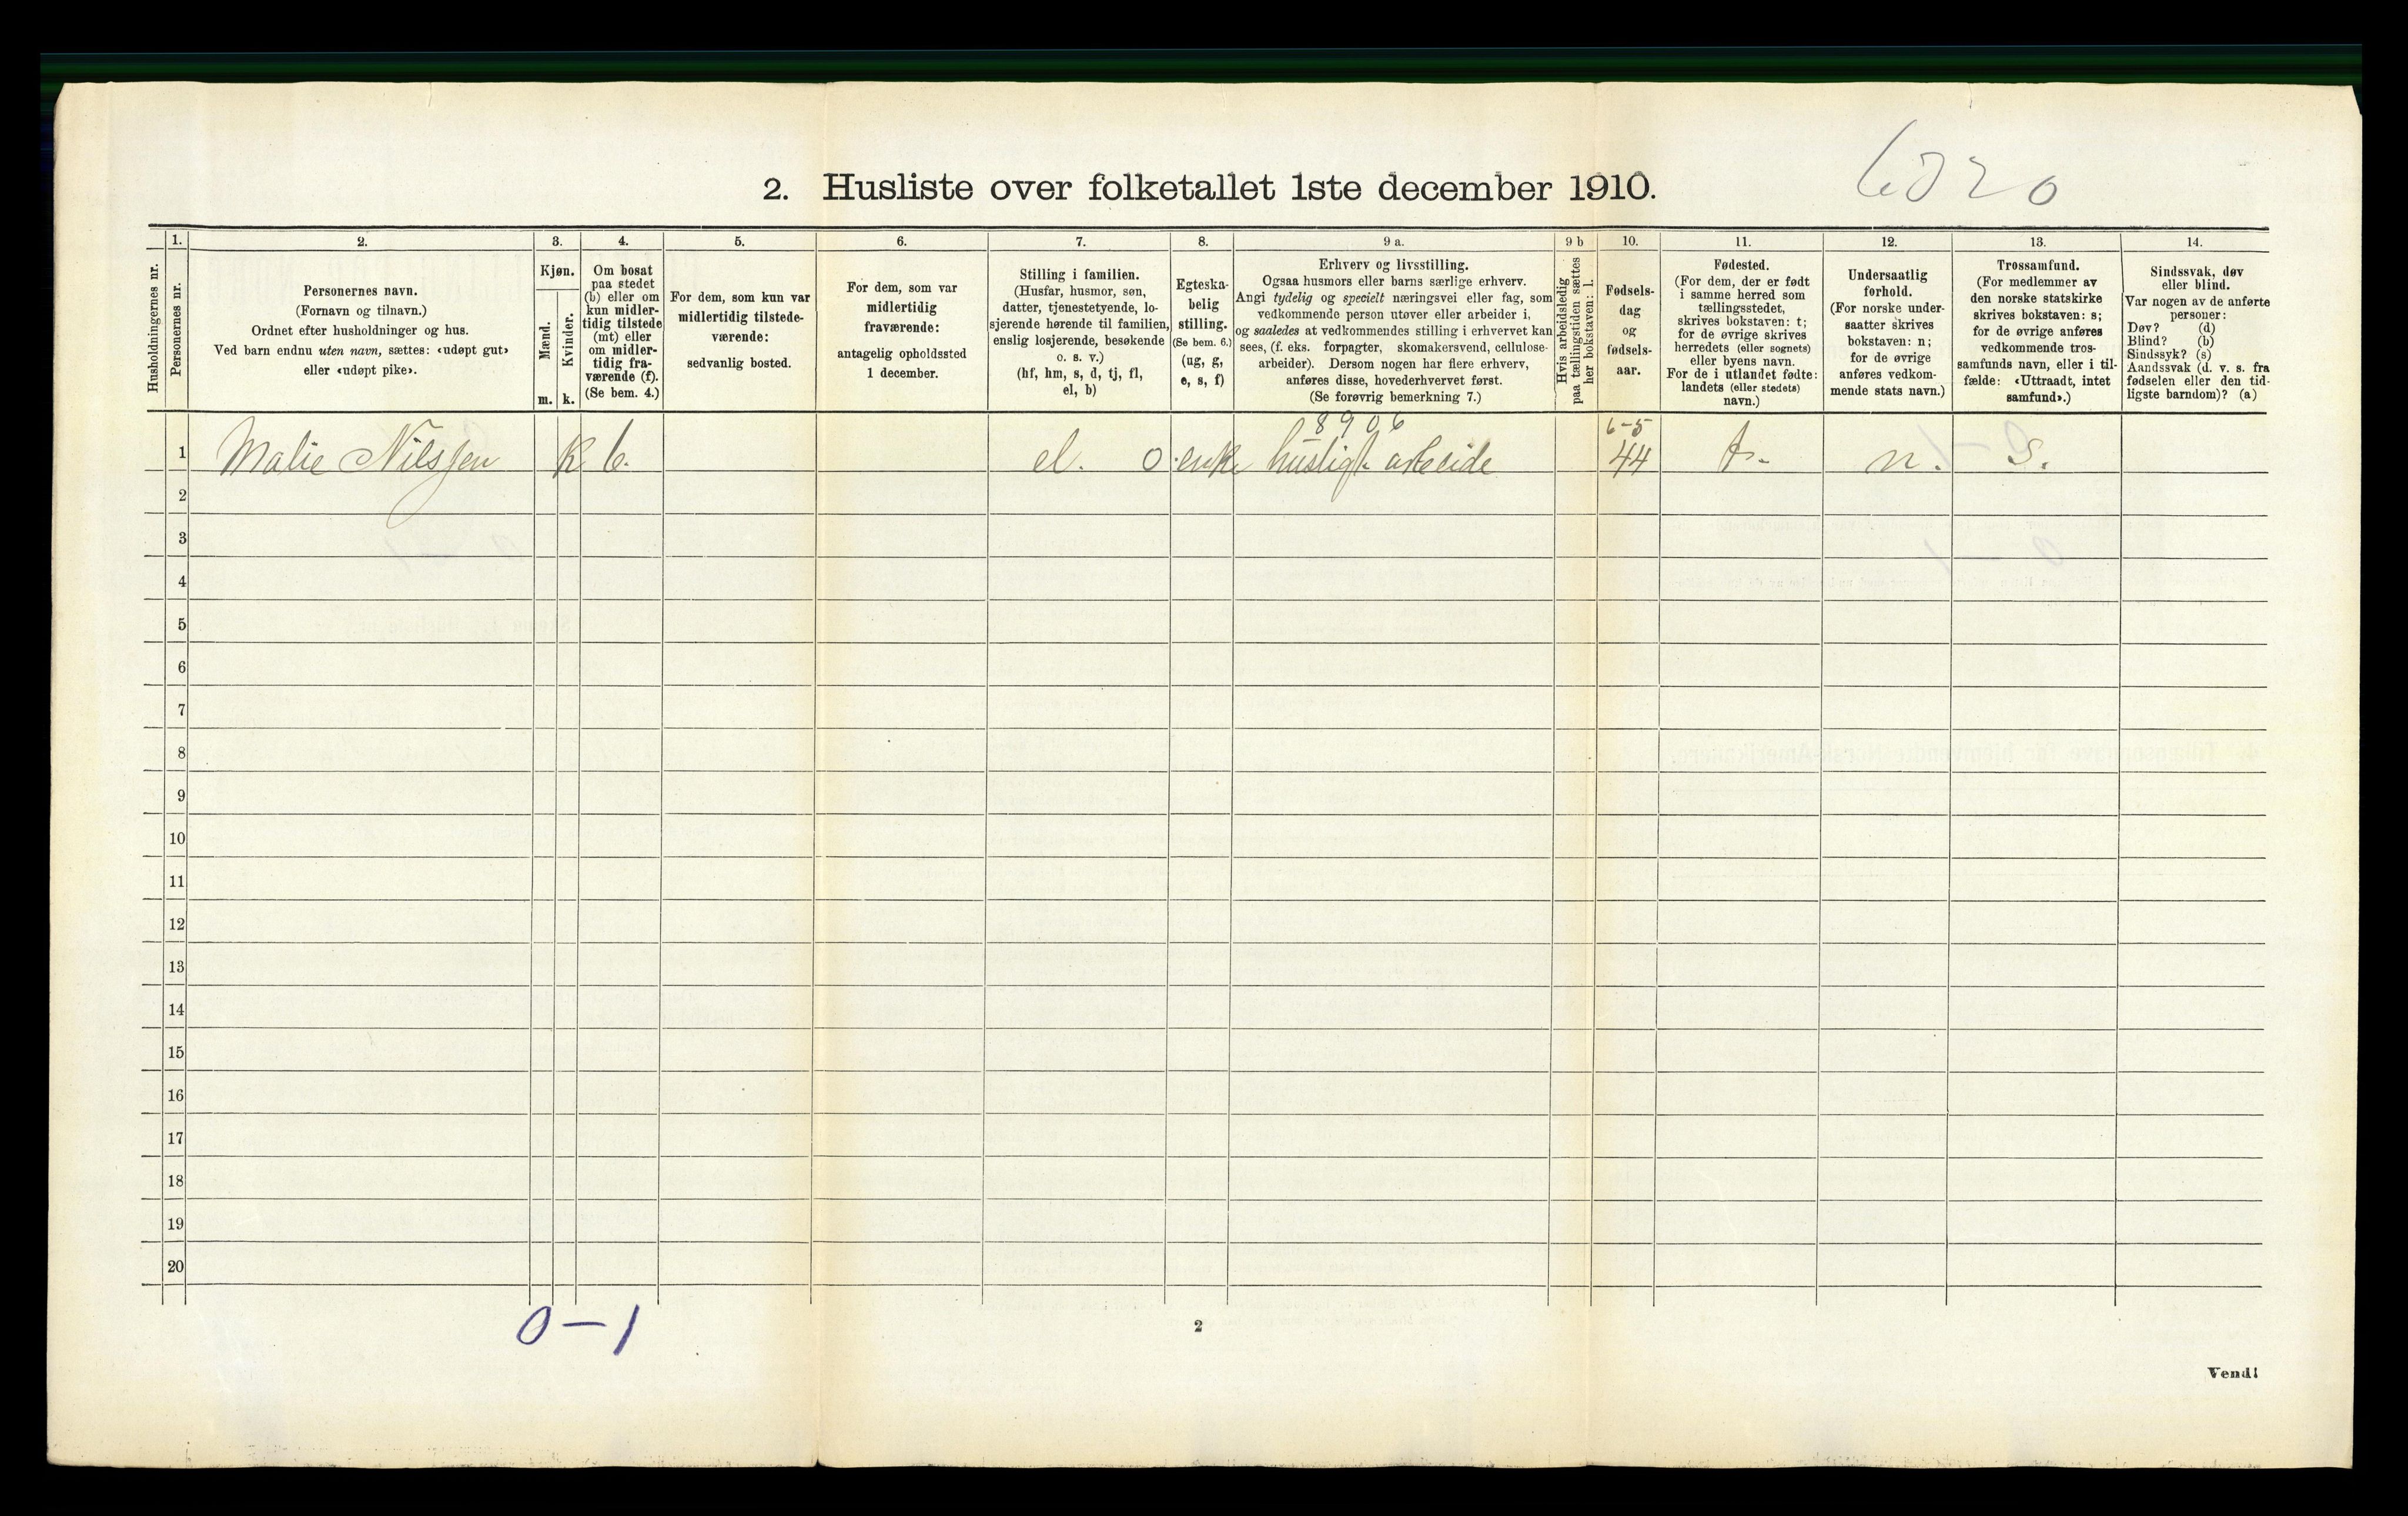 6020
2. Husliste over folketallet 1ste december 1910.
Husholdningernes nr.
1.
Personernes nr.
2.
Personernes navn.
(Fornavn og tilnavn.)
Ordnet efter husholdninger og hus.
Ved barn endnu uten navn, sættes: «udøpt gut»
eller «udøpt pike».
3.
Kjøn.
Mænd.
Kvinder.
m. k.
4.
Om bosat
paa stedet
(b) eller om
kun midler-
tidig tilstede
(mt) eller
om midler-
tidig fra-
værende (f).
(Se bem. 4.)
5.
For dem, som kun var
midlertidig tilstede-
værende:
sedvanlig bosted.
6.
For dem, som var
midlertidig
fraværende:
antagelig opholdssted
1 december.
7.
Stilling i familien.
(Husfar, husmor, søn,
datter, tjenestetyende, lo-
sjerende hørende til familien,
enslig losjerende, besøkende
o. s. v.)
(hf, hm, s, d, tj, fl,
el, b)
8.
Egteska-
belig
stilling.
(Se bem. 6.)
(ug, g,
e, s, f)
9 a.
Erhverv og livsstilling.
Ogsaa husmors eller barns særlige erhverv.
Angi tydelig og specielt næringsvei eller fag, som
vedkommende person utøver eller arbeider i,
og saaledes at vedkommendes stilling i erhvervet kan
sees, (f. eks. forpagter, skomakersvend, cellulose-
arbeider). Dersom nogen har flere erhverv,
anføres disse, hovederhvervet først.
(Se forøvrig bemerkning 7.)
9 b
Hvis arbeidsledig
paa tællingstiden sættes
her bokstaven: l.
10.
Fødsels-
dag
og
fødsels-
aar.
11.
Fødested.
(For dem, der er født
i samme herred som
tællingsstedet,
skrives bokstaven: t;
for de øvrige skrives
herredets (eller sognets)
eller byens navn.
For de i utlandet fødte:
landets (eller stedets)
navn.)
12.
Undersaatlig
forhold.
(For norske under-
saatter skrives
bokstaven: n;
for de øvrige
anføres vedkom-
mende stats navn.)
13.
Trossamfund.
(For medlemmer av
den norske statskirke
skrives bokstaven: s;
for de øvrige anføres
vedkommende tros-
samfunds navn, eller i til-
fælde: «Uttraadt, intet
samfund».)
14.
Sindssvak, døv
eller blind.
Var nogen av de anførte
personer:
Døv? (d)
Blind? (b)
Sindssyk? (s)
Aandssvak (d. v. s. fra
fødselen eller den tid-
ligste barndom)? (a)
8906 6-5
1 Malie Nilssen k b. el. 0 enke husligt arbeide 44 t. n. s.
2
3
4
5
6
7
8
9
10
11
12
13
14
15
16
17
18
19
20
0-1
2
Vend!